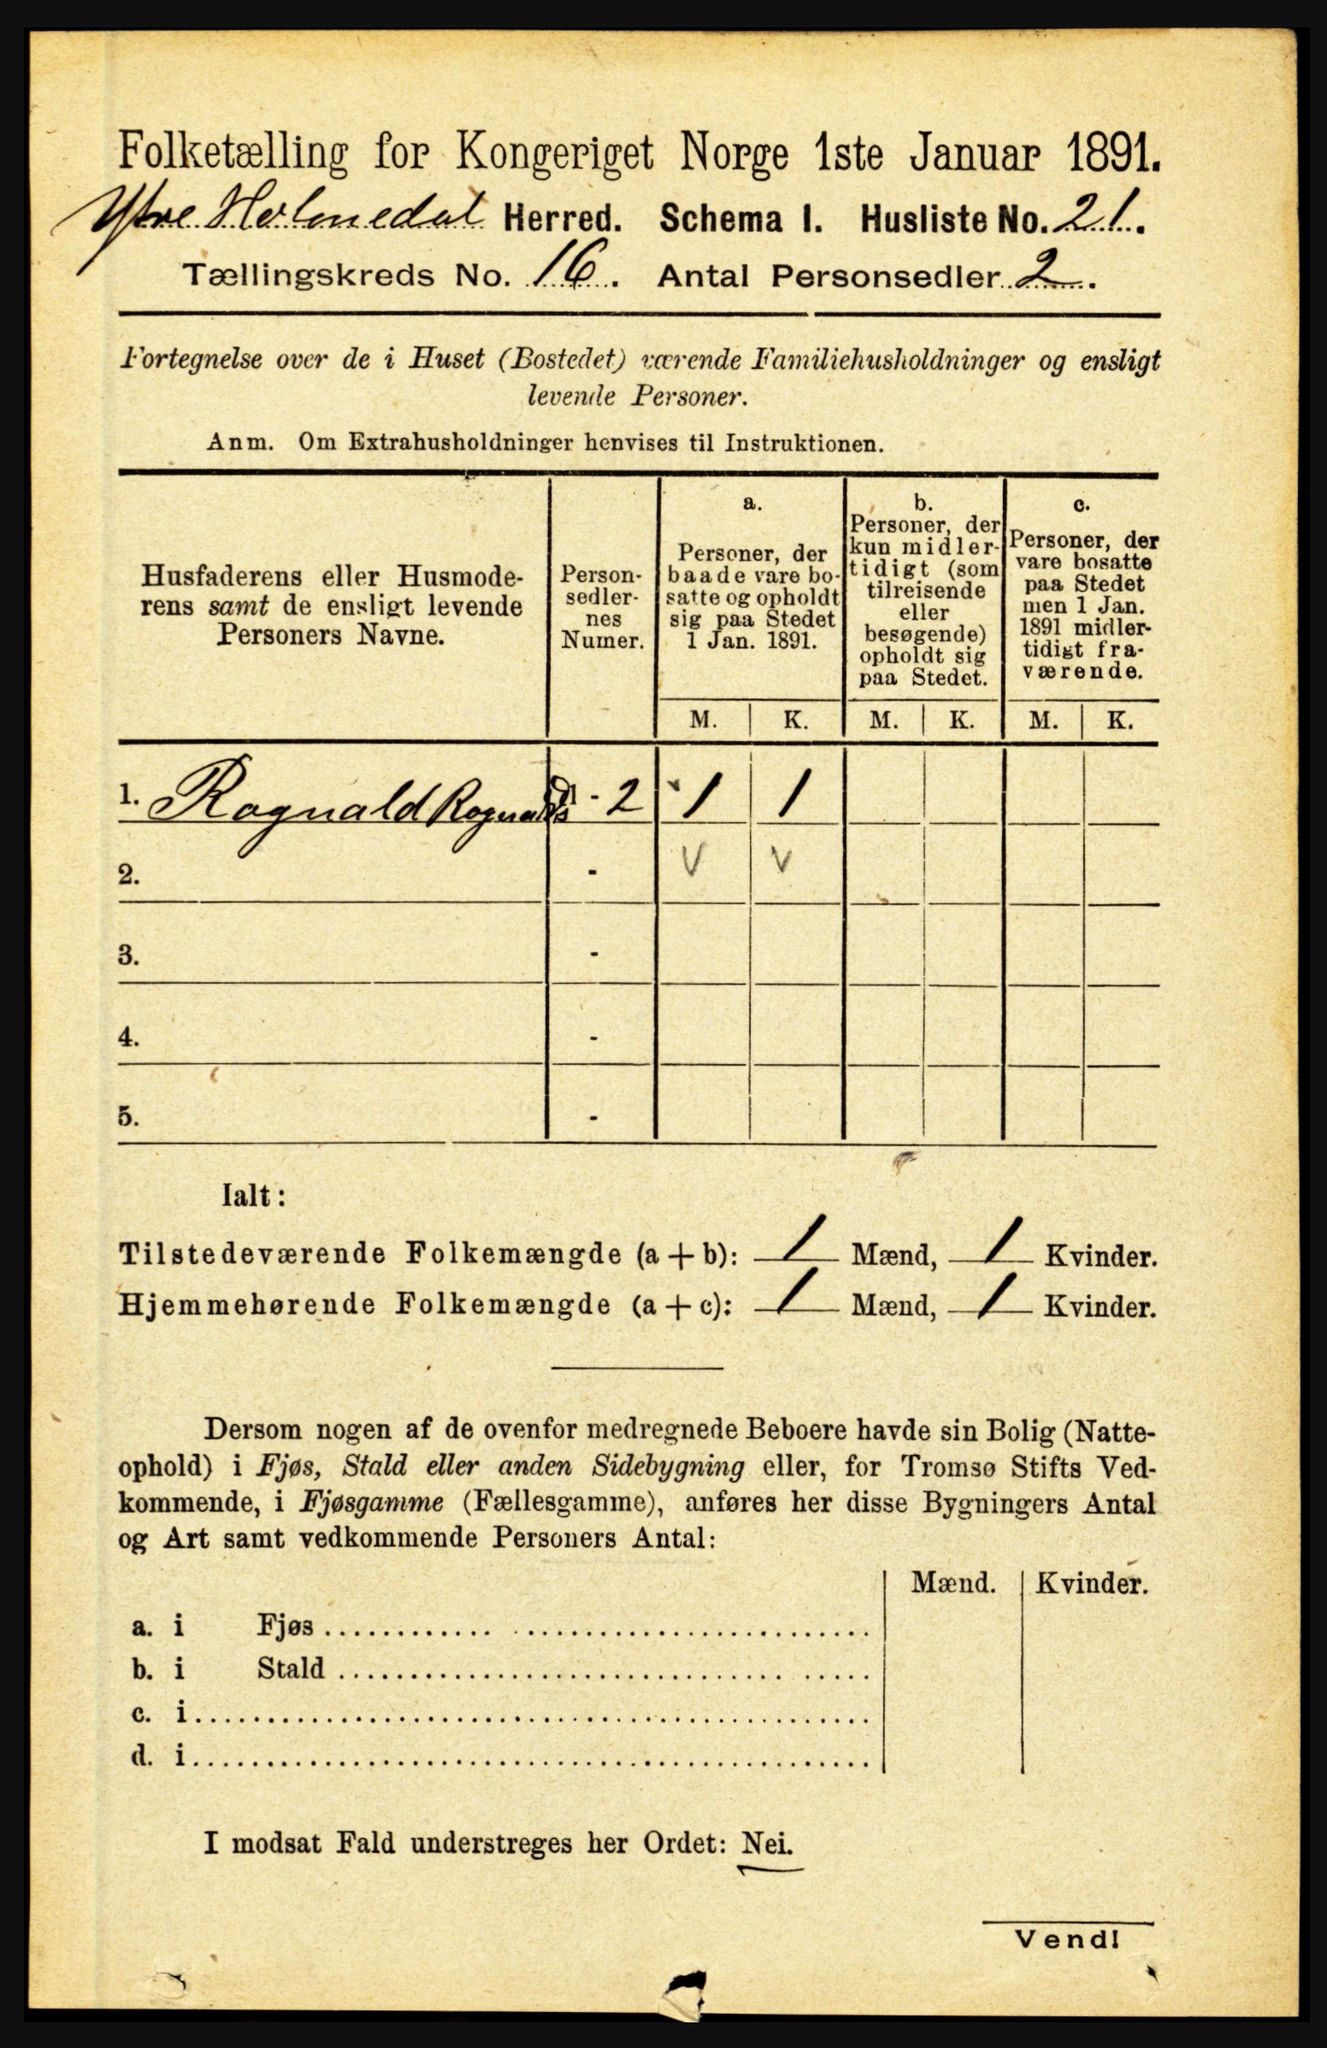 Folketælling for Kongeriget Norge 1ste Januar 1891.
Ytre Holmedal Herred. Schema I. Husliste No. 21.
Tællingskreds No. 16. Antal Personsedler 2.
Fortegnelse over de i Huset (Bostedet) værende Familiehusholdninger og ensligt
levende Personer.
Anm. Om Extrahusholdninger henvises til Instruktionen.
Husfaderens eller Husmode-
rens samt de ensligt levende
Personers Navne.
Person-
sedler-
nes
Numer.
a.
Personer, der
baade vare bo-
satte og opholdt
sig paa Stedet
1 Jan. 1891.
b.
Personer, der
kun midler-
tidigt (som
tilreisende
eller
besøgende)
opholdt sig
paa Stedet.
c.
Personer, der
vare bosatte
paa Stedet
men 1 Jan.
1891 midler-
tidigt fra-
værende.
M. K. M. K. M. K.
1. Rognald 1 - 2 1 1
2. - V V
3. -
4. -
5. -
Ialt:
Tilstedeværende Folkemængde (a + b): 1 Mænd, 1 Kvinder.
Hjemmehørende Folkemængde (a + c): 1 Mænd, 1 Kvinder.
Dersom nogen af de ovenfor medregnede Beboere havde sin Bolig (Natte-
ophold) i Fjøs, Stald eller anden Sidebygning eller, for Tromsø Stifts Ved-
kommende, i Fjøsgamme (Fællesgamme), anføres her disse Bygningers Antal
og Art samt vedkommende Personers Antal:
Mænd. Kvinder.
a. i Fjøs
b. i Stald
c. i
d. i
I modsat Fald understreges her Ordet: Nei.
Vend!